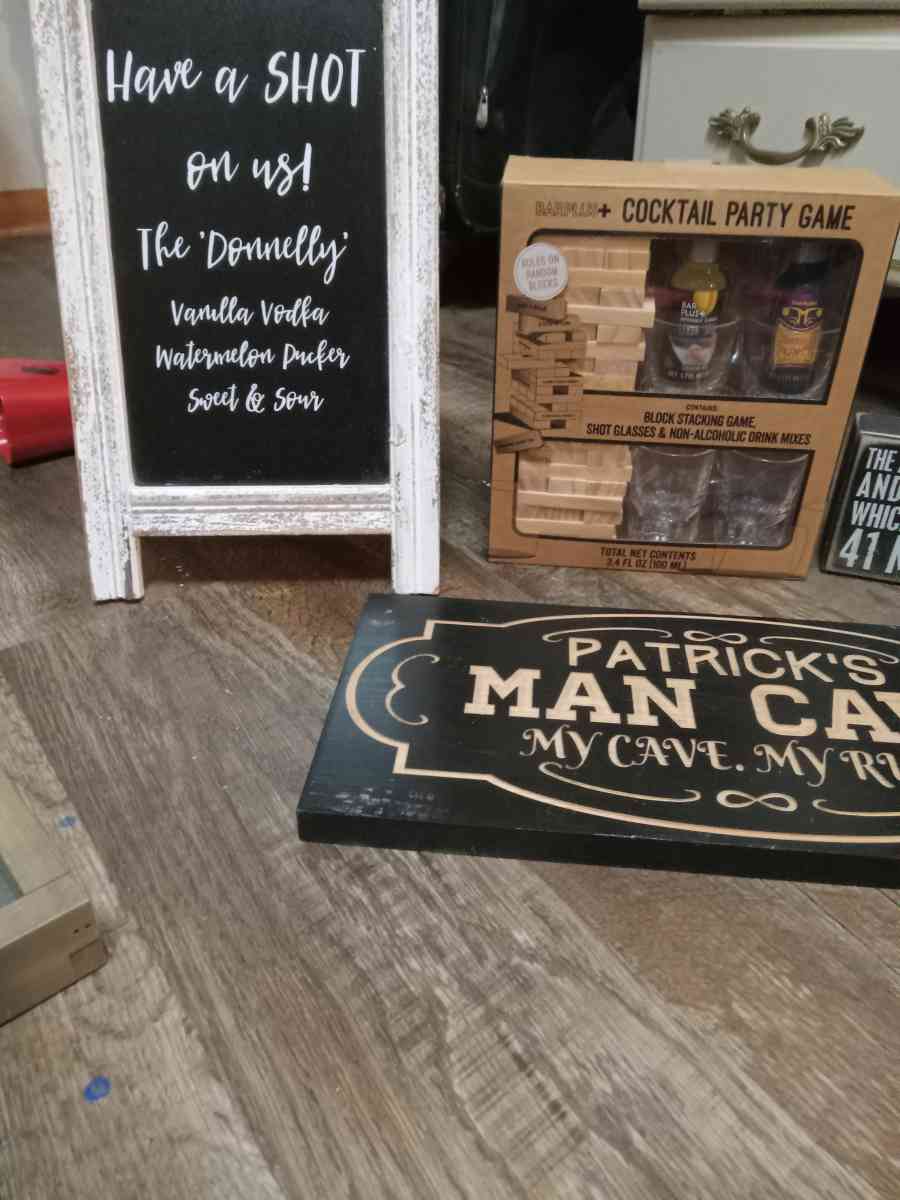 Have a SHOT
on us!
The 'Donnelly'
Vanilla Vodka
Watermelon Pucker
Sweet & Sour
BARPLUS+ COCKTAIL PARTY GAME
RULES ON
RANDOM
BLOCKS
BAR
PLUS+
CONTAINS:
BLOCK STACKING GAME,
SHOT GLASSES & NON-ALCOHOLIC DRINK MIXES
TOTAL NET CONTENTS
3.4 FL OZ (100 ML)
THE
AND
WHIC
41
PATRICK'S
MAN CAV
MY CAVE. MY RU